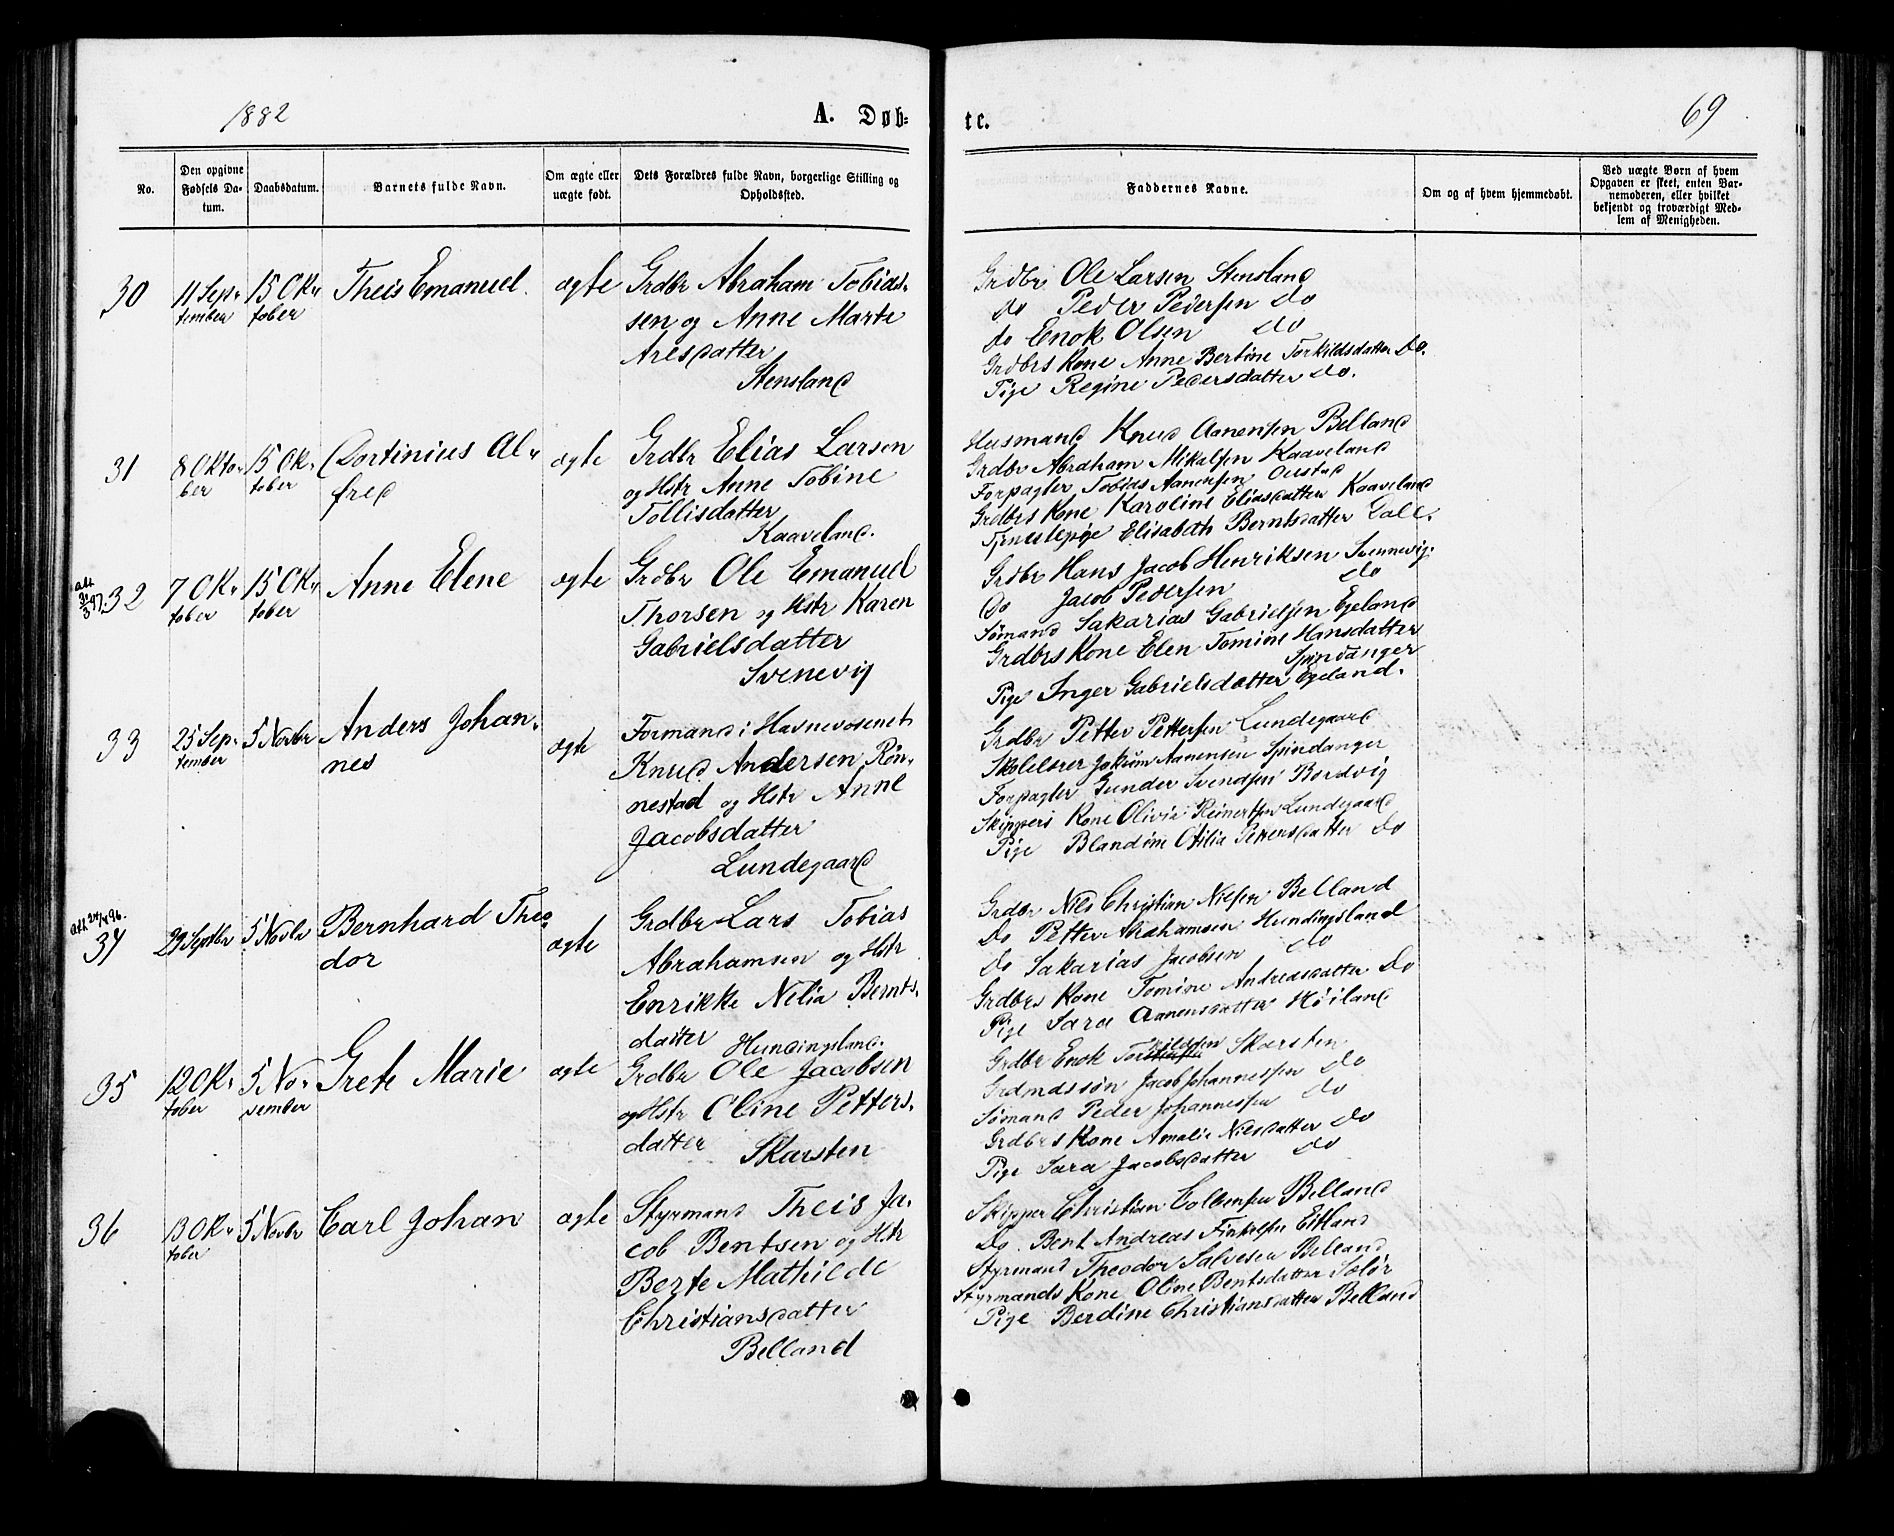 1882
A. Døb-
te.
69
No.
Den opgivne
Fødsels Da-
tum.
Daabsdatum.
Barnets fulde Navn.
Om ægte eller
uægte født.
Dets Forældres fulde Navn, borgerlige Stilling og
Opholdssted.
Faddernes Navne.
Om og af hvem hjemmedøbt.
Ved uægte Børn af hvem
Opgaven er skeet, enten Bar-
nemoderen, eller hvilket
bekjendt og troværdigt Med-
lem af Menigheden.
30
11 Sep-
tember
15 Ok-
tober
Theis Emanuel
ægte
Grdbr Abraham Tobias-
sen og Anne Marte
Aresdatter
Stensland
Grdbr Ole Larsen Stensland
do Peder Pedersen do
do Enok Olsen do
Grdbrs Kone Anne Bertine Torkildsdatter do.
Pige Regine Pedersdatter do.
31
8 Okto-
ber
15 Ok-
tober
Dortinius Al-
fred
ægte
Grdbr Elias Larsen
og Hstr Anne Tobine
Tollisdatter
Kaaveland.
Husmand Knud Aanensen Belland
Grdbr Abraham Mikalsen Kaaveland
Forpagter Tobias Aanensen
Grdbrs Kone Karoline Eliasdatter Kaaveland
Tjenestepige Elisabeth Berntsdatter
32
7 Ok-
tober
15 Ok-
tober
Anne Elene
ægte
Grdbr Ole Emanuel
Thorsen og Hstr Karen
Gabrielsdatter
Svenevig
Grdbr Hans Jacob Henriksen Svennevig.
Do Jacob Pedersen do
Sømand Sakarias Gabrielsen Egeland
Grdbrs Kone Elen Tomine Hansdatter
Spindanger
Pige Inger Gabrielsdatter Egeland.
33
25 Sep-
tember
5 Novbr
Anders Johan-
nes
ægte
Formand i Havnevæsenet
Knud Andersen Røn-
nestad og Hstr Anne
Jacobsdatter
Lundegaard
Grdbr Petter Pettersen Lundegaard
Skolelærer Jokum Aanensen Spindanger
Forpagter Gunder Svendsen Bordvig
Skippers Kone Olivia Reinertsen Lundegaard
Pige Blandine Otilia Pettersdatter do
34
29 Septbr
5 Novbr
Bernhard Theo-
dor
ægte
Grdbr Lars Tobias
Abrahamsen og Hstr
Enrikke Nelia Bernts-
datter Hundingsland.
Grdbr Nils Christian Nilsen Belland
Do Petter Abrahamsen Hundingsland
do Sakarias Jacobsen do
Grdbrs Kone Tomine Andreasdatter do
Pige Sara Aanensdatter Høiland
35
12 Ok-
tober
5 No-
vember
Grete Marie
ægte
Grdbr Ole Jacobsen
og Hstr Oline Petters-
datter Skarsten
Grdbr Enok Skarsten
Grdmdssøn Jacob Johannessen do
Sømand Peder Johannessen do
Grdbrs Kone Amalie Nilsdatter do
Pige Sara Jacobsdatter do
36
13 Ok-
tober
5 Novbr
Carl Johan
ægte
Styrmand Theis Ja-
cob Bentsen og Hstr
Berte Mathilde
Christiansdatter
Belland
Skipper Christian Belland
Do. Bent Andreas
Styrmand Theodor Salvesen Belland
Styrmands Kone Oline Bentsdatter
Pige Berdine Christiansdatter Belland